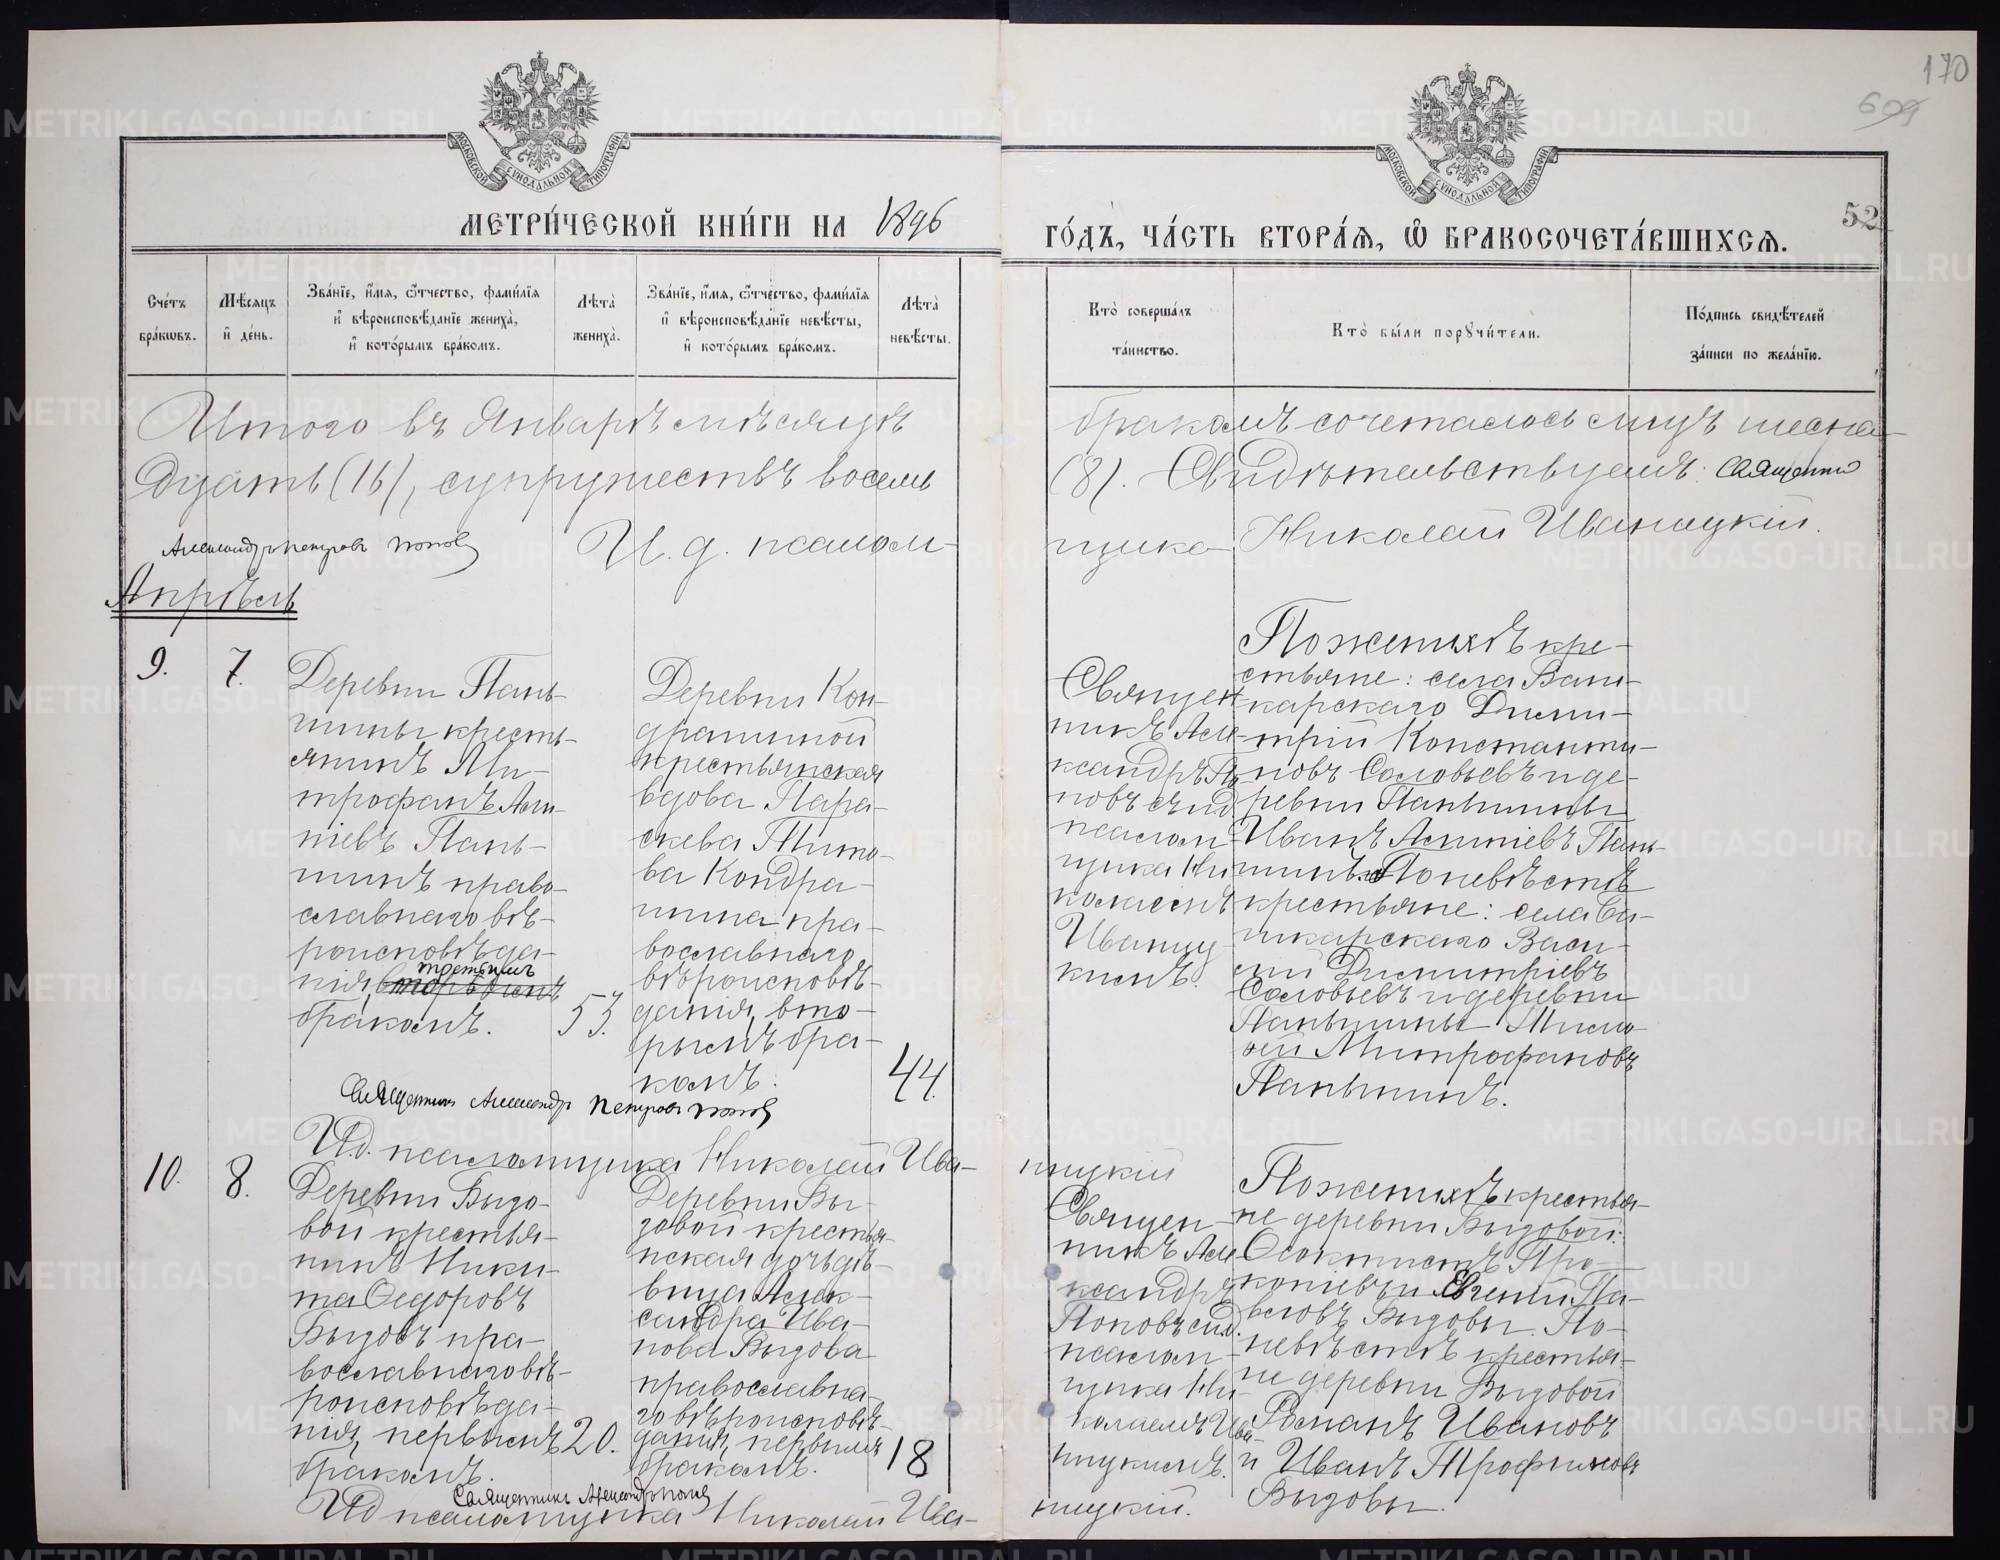 170
609
52
МОСКОВСКОЙ СУНОДАЛЬНОЙ ТИПОГРАФІИ
МОСКОВСКОЙ СУНОДАЛЬНОЙ ТИПОГРАФІИ
МЕТРИ́ЧЕСКОЙ КНИ́ГИ НА 1896
ГО́ДЪ, ЧА́СТЬ ВТОРА́Я, Ѽ БРАКОСОЧЕТА́ВШИХСЯ.
Сче́тъ бра́кѡвъ.
Мѣ́сяцъ и҆ де́нь.
Зва́нїе, и҆́мя, ѻ҆́тчество, фами́лїя и҆ вѣроисповѣ́данїе жениха̀, и҆ кото́рымъ бра́комъ.
Лѣта̀ жениха̀.
Зва́нїе, и҆́мя, ѻ҆́тчество, фами́лїя и҆ вѣроисповѣ́данїе невѣ́сты, и҆ кото́рымъ бра́комъ.
Лѣта̀ невѣ́сты.
Кто̀ соверша́лъ та́инство.
Кто̀ бы́ли порꙋчи́тели.
По́дпись свидѣ́телей за́писи по жела́нїю.
Итого въ Январѣ мѣсяцѣ бракомъ сочеталось лицъ шесна-
дцать (16), супружествъ восемь (8). Свидѣтельствуемъ: Священникъ
Александръ Петровъ Поповъ И. д. псалом-
щика Николай Иваницкій.
Апрѣль
9.
7.
Деревни Пань-
шины кресть-
янинъ Ми-
трофанъ Асти-
ніевъ Пань-
шинъ право-
славнаго вѣ-
роисповѣда-
третьимъ
нія, вторымъ
бракомъ.
53.
Деревни Кон-
драшиной
крестьянская
вдова Пара-
скева Титова
Кондра-
шина пра-
вославнаго
вѣроисповѣ-
данія, вто-
рымъ бра-
комъ.
44.
Священ-
никъ Але-
ксандръ По-
повъ съ и.д.
псалом-
щика Ни-
колаемъ
Иваниц-
кимъ.
По женихѣ кре-
стьяне: села Баш-
карскаго Дими-
трій Константи-
новъ Соловьевъ и де-
ревни Паньшины
Иванъ Астиніевъ Пань-
шинъ. По невѣстѣ
крестьяне: села Ба-
шкарскаго Васи-
лій Димитріевъ
Соловьевъ и деревни
Паньшины Тимо-
ѳей Митрофановъ
Паньшинъ.
Священникъ Александръ Петровъ Поповъ
И.д. псаломщика Николай Ива-
ницкій
10.
8.
Деревни Выдо-
вой крестья-
нинъ Ники-
та Ѳедоровъ
Выдовъ пра-
вославнаго вѣ-
роисповѣда-
нія, первымъ
бракомъ.
20.
Деревни Вы-
довой крестья-
нская дочь дѣ-
вица Алек-
сандра Ива-
нова Выдова
православна-
го вѣроисповѣ-
данія, первымъ
бракомъ.
18
Священ-
никъ Але-
ксандръ
Поповъ съ и.д.
псалом-
щика Ни-
колаемъ Ива-
ницкимъ.
По женихѣ крестья-
не деревни Выдовой:
Ѳеоктистъ Про-
копіевъ и Евгеній Па-
вловъ Выдовы. По
невѣстѣ крестья-
не деревни Выдовой
Романъ Ивановъ
и Иванъ Трофимовъ
Выдовы.
Священникъ Александръ Поповъ
И.д. псаломщика Николай Ива-
ницкій.
METRIKI.GASO-URAL.RU